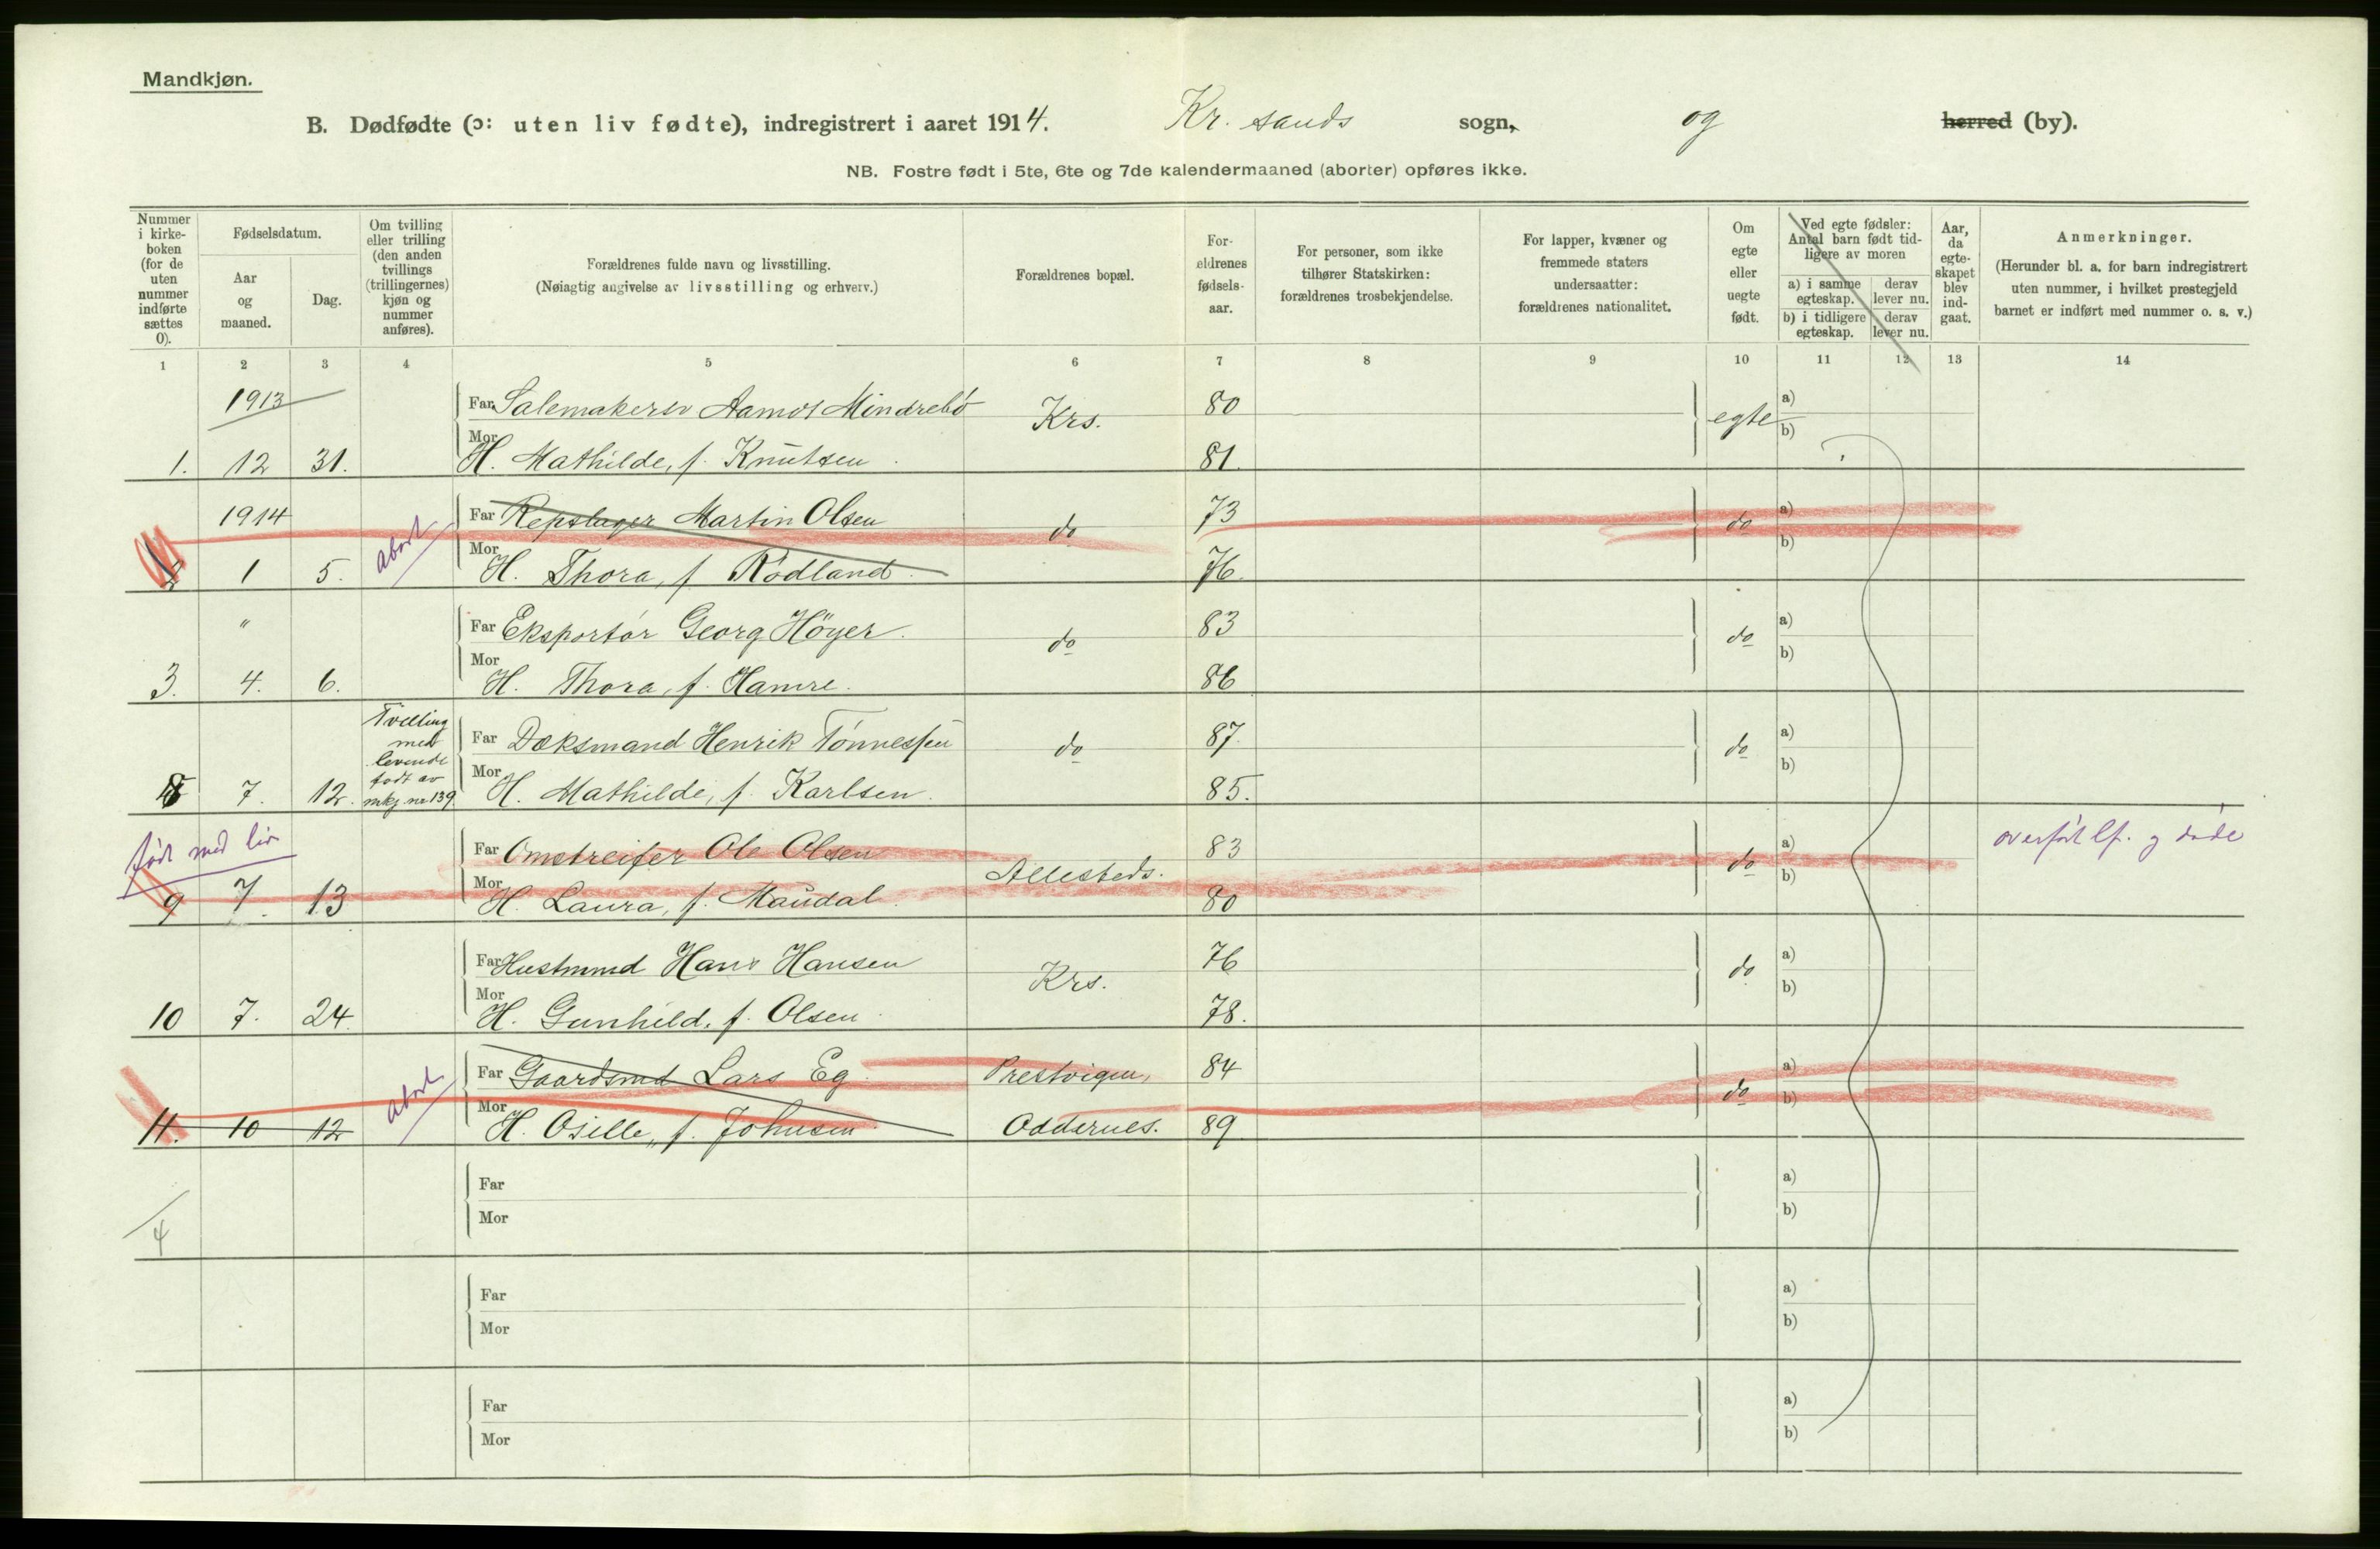 Mandkjøn.
B. Dødfødte (ɔ: uten liv fødte), indregistrert i aaret 1914. Kr. sands sogn, og herred (by).
NB. Fostre født i 5te, 6te og 7de kalendermaaned (aborter) opføres ikke.
Nummer i kirke-boken (for de uten nummer indførte sættes 0).
Fødselsdatum.
Aar og maaned.
Dag.
Om tvilling eller trilling (den anden tvillings (trillingernes) kjøn og nummer anføres).
Forældrenes fulde navn og livsstilling.
(Nøiagtig angivelse av livsstilling og erhverv.)
Forældrenes bopæl.
For-ældrenes fødsels-aar.
For personer, som ikke tilhører Statskirken: forældrenes trosbekjendelse.
For lapper, kvæner og fremmede staters undersaatter: forældrenes nationalitet.
Om egte eller uegte født.
Ved egte fødsler: Antal barn født tid-ligere av moren
a) i samme egteskap.
derav lever nu.
b) i tidligere egteskap.
derav lever nu.
Aar, da egte-skapet blev ind-gaat.
Anmerkninger.
(Herunder bl. a. for barn indregistrert uten nummer, i hvilket prestegjeld barnet er indført med nummer o. s. v.)
1 2 3 4 5 6 7 8 9 10 11 12 13 14
1913
Far Salemakersv Aamot Mindrebö Krs. 80 egte a)
b)
1. 12 31. Mor H. Mathilde, f. Knutsen. 81.
1914 Far Repslager Martin Olsen do 73 do a)
b)
2 1 5. abort Mor H. Thora, f. Rödland. 76.
" Far Eksportör Georg Höyer. do 83 do a)
b)
3. 4. 6. Mor H. Thora, f. Hamre. 86
Tvilling
med
levende
født av
mkj nr 139
Far Doksmand Henrik Tönnessen do 87. do a)
b)
7. 12. Mor H. Mathilde, f. Karlsen. 85.
født med liv
Far Omstreifer Ole Olsen Allesteds. 83 do a) overført lf. og døde
b)
9 7. 13 Mor H. Laura, f. Maudal. 80
Far Hustmmd Hans Hansen Krs. 76 do a)
b)
10 7. 24. Mor H. Gunhild, f. Olsen. 78.
Far Gaardsmd Lars Eg. Prestvigen, 84 do a)
b)
11. 10 12 abort Mor H. Osille, f. Johnsen Oddernes. 89
Far a)
Mor b)
4
Far a)
Mor b)
Far a)
Mor b)